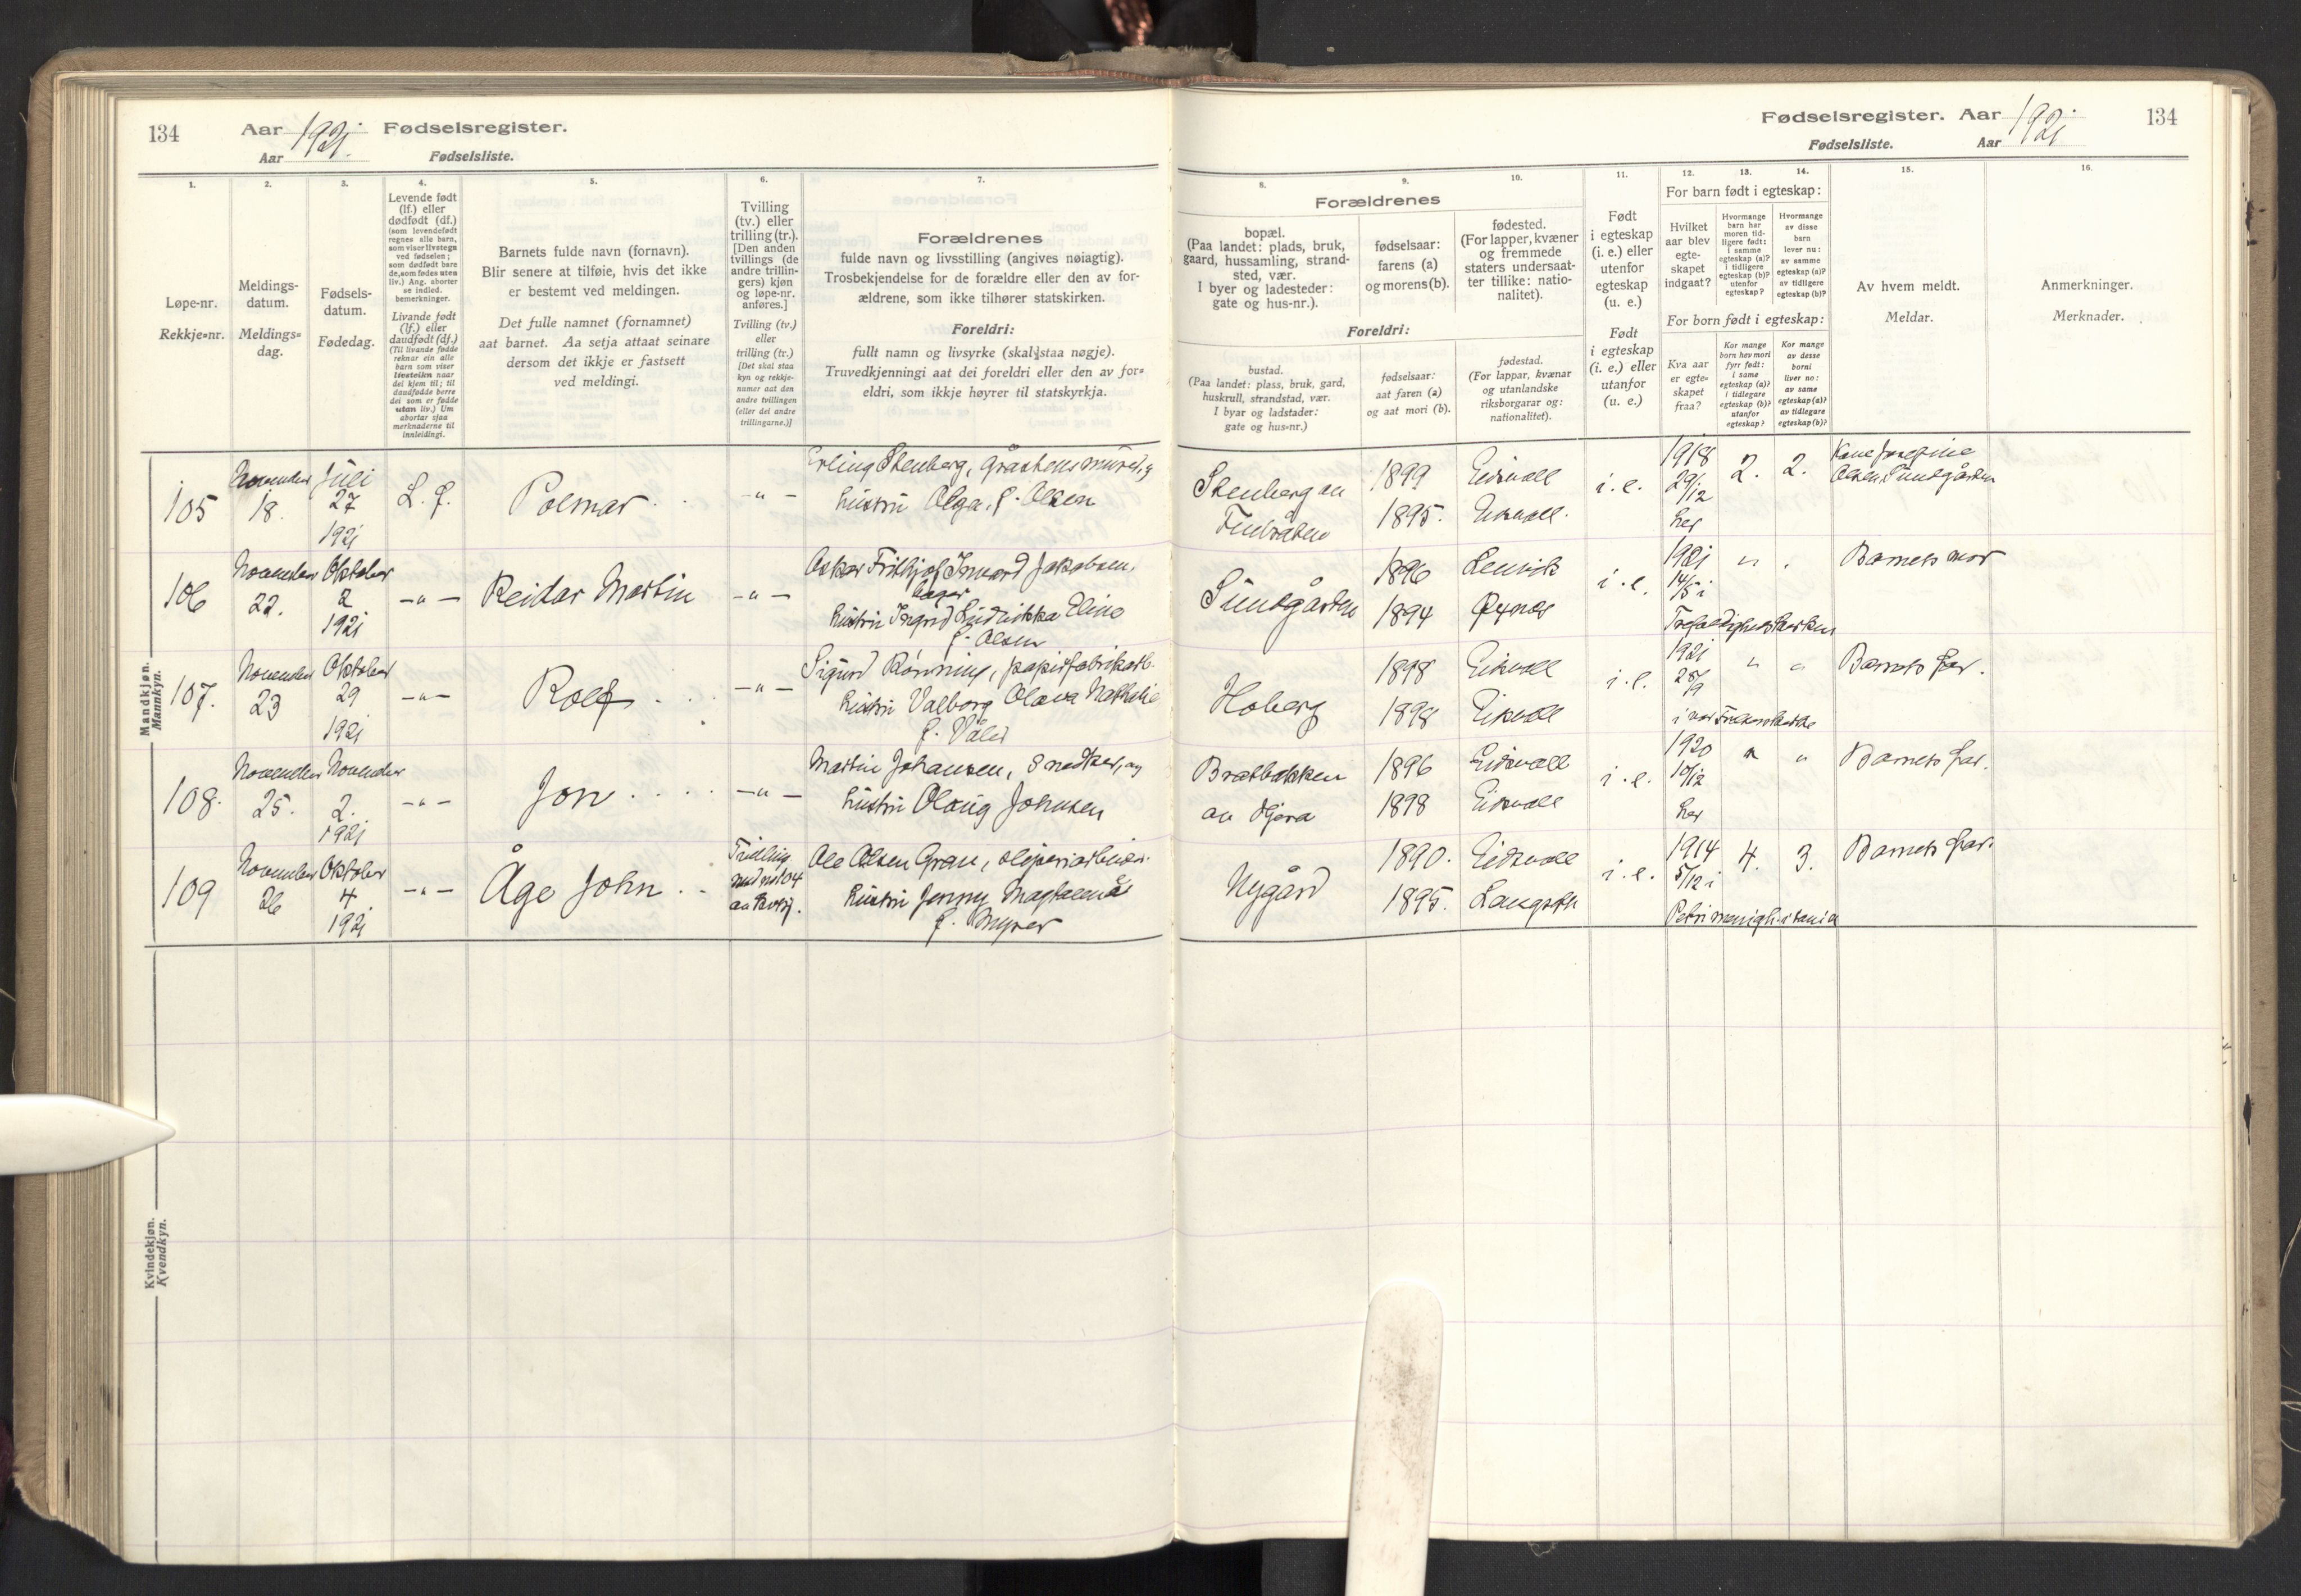 134
Aar 1921. Fødselsregister.
Aar
Fødselsliste.
Fødselsregister. Aar 1921
Fødselsliste. Aar
134
1.
Løpe-nr.
Rekkje=nr.
2.
Meldings-
datum.
Meldings=
dag.
3.
Fødsels-
datum.
Fødedag.
4.
Levende født
(lf.) eller
dødfødt (df.)
(som levendefødt
regnes alle barn,
som viser livstegn
ved fødselen;
som dødfødt bare
de, som fødes uten
liv.) Ang. aborter
se indled.
bemerkninger.
Livande født
(lf.) eller
daudfødt (df.)
(Til livande fødde
reknar ein alle
barn som viser
livsteikn naar
dei kjem til; til
daudfødde berre
dei som er fødde
utan liv.) Um
abortar sjaa
merknaderne til
innleidingi.
5.
Barnets fulde navn (fornavn).
Blir senere at tilføie, hvis det ikke
er bestemt ved meldingen.
Det fulle namnet (fornamnet)
aat barnet. Aa setja attaat seinare
dersom det ikkje er fastsett
ved meldingi.
6.
Tvilling
(tv.) eller
trilling (tr.).
[Den anden
tvillings (de
andre trillin-
gers) kjøn
og løpe-nr.
anføres.]
Tvilling (tv.)
eller
trilling (tr.)
[Det skal staa
kyn og rekkje-
numer aat den
andre tvillingen
(eller dei andre
trillingarne.)]
7.
Forældrenes
fulde navn og livsstilling (angives nøiagtig).
Trosbekjendelse for de forældre eller den av for-
ældrene, som ikke tilhører statskirken.
Foreldri:
fullt namn og livsyrke (skal staa nøgje).
Truvedkjenningi aat dei foreldri eller den av for=
eldri, som ikkje høyrer til statskyrkja.
8.
Forældrenes
bopæl.
(Paa landet: plads, bruk,
gaard, hussamling, strand-
sted, vær.
I byer og ladesteder:
gate og hus-nr.).
Foreldri:
bustad.
(Paa landet: plass, bruk, gard,
huskrull, strandstad, vær.
I byar og ladstader:
gate og hus=nr.)
9.
fødselsaar:
farens (a)
og morens (b).
fødselsaar:
aat faren (a)
og aat mori (b).
10.
fødested.
(For lapper, kvæner
og fremmede
staters undersaat-
ter tillike: natio-
nalitet).
fødestad.
(For lappar, kvænar
og utanlandske
riksborgarar og:
nationalitet).
11.
Født
i egteskap
(i. e.) eller
utenfor
egteskap
(u. e.)
Født
i egteskap
(i. e.) eller
utanfor
egteskap
(u. e.)
12. 13. 14.
For barn født i egteskap:
Hvilket
aar blev
egte-
skapet
indgaat?
Hvormange
barn har
moren tid-
ligere født:
i samme
egteskap (a)?
i tidligere
egteskap (b)?
utenfor
egteskap?
Hvormange
av disse
barn
lever nu:
av samme
egteskap (a)?
av tidligere
egteskap (b)?
For born født i egteskap:
Kva aar
er egte-
skapet
fraa?
Kor mange
born hev mori
fyrr født:
i same
egteskap (a)?
i tidlegare
egteskap (b)?
utanfor
egteskap?
Kor mange
av desse
borni
liver no:
av same
egteskap (a)?
av tidlegare
egteskap (b)?
15.
Av hvem meldt.
Meldar.
16.
Anmerkninger.
Merknader.
Mandkjøn.
Mannkyn.
105
November
18.
Juli
27
1921
L. f.
Polmar
-"-
Erling Stenberg, gråstensmurer, og
hustru Olga, f. Olsen
Stenberg av
1899
1895.
Eidsvoll
Eidsvoll.
i. e.
1918
29/12
her
2.
2.
Kone Josefine
Olsen, Sundgården
106
November
22.
Oktober
2
1921
-"-
Reidar Martin
-"-
Oskar Fridtjof Ingvard Jakobsen,
hustru Ingrid Eline
f. Olsen
Sundgården
1896
1894
Lenvik
i. e.
1921
14/5 i
Trefoldighetskirken
"
Barnets mor
107.
November
23
Oktober
29
1921
-"-
Rolf
-"-
Sigurd Rønning, papirfabrikarb.
hustru Valborg Olava Nathalie
Hoberg
1898
1898
Eidsvoll
Eidsvoll
i. e.
1921
28/9
"
"
Barnets far.
108.
November
25.
November
2.
1921
-"-
Jon
-"-
Martin Johansen, Snedker, og
hustru Olaug Johnsen
Brætbakken
av
1896
1898
Eidsvoll
Eidsvoll
i. e.
1920
10/12
her
"
"
Barnets far.
109
November
26
Oktober
4
1921
-"-
Åge John
Tvilling
med nr 104
Ole Olsen Gran, sliperiarbeider.
hustru Jenny Magdalena
f. Myrer
Nygård
1890.
1895.
Eidsvoll
Langseth
i. e.
1914
5/12 i
Petri menigh.
4.
3.
Barnets far.
Kvindekjøn.
Kvendkyn.